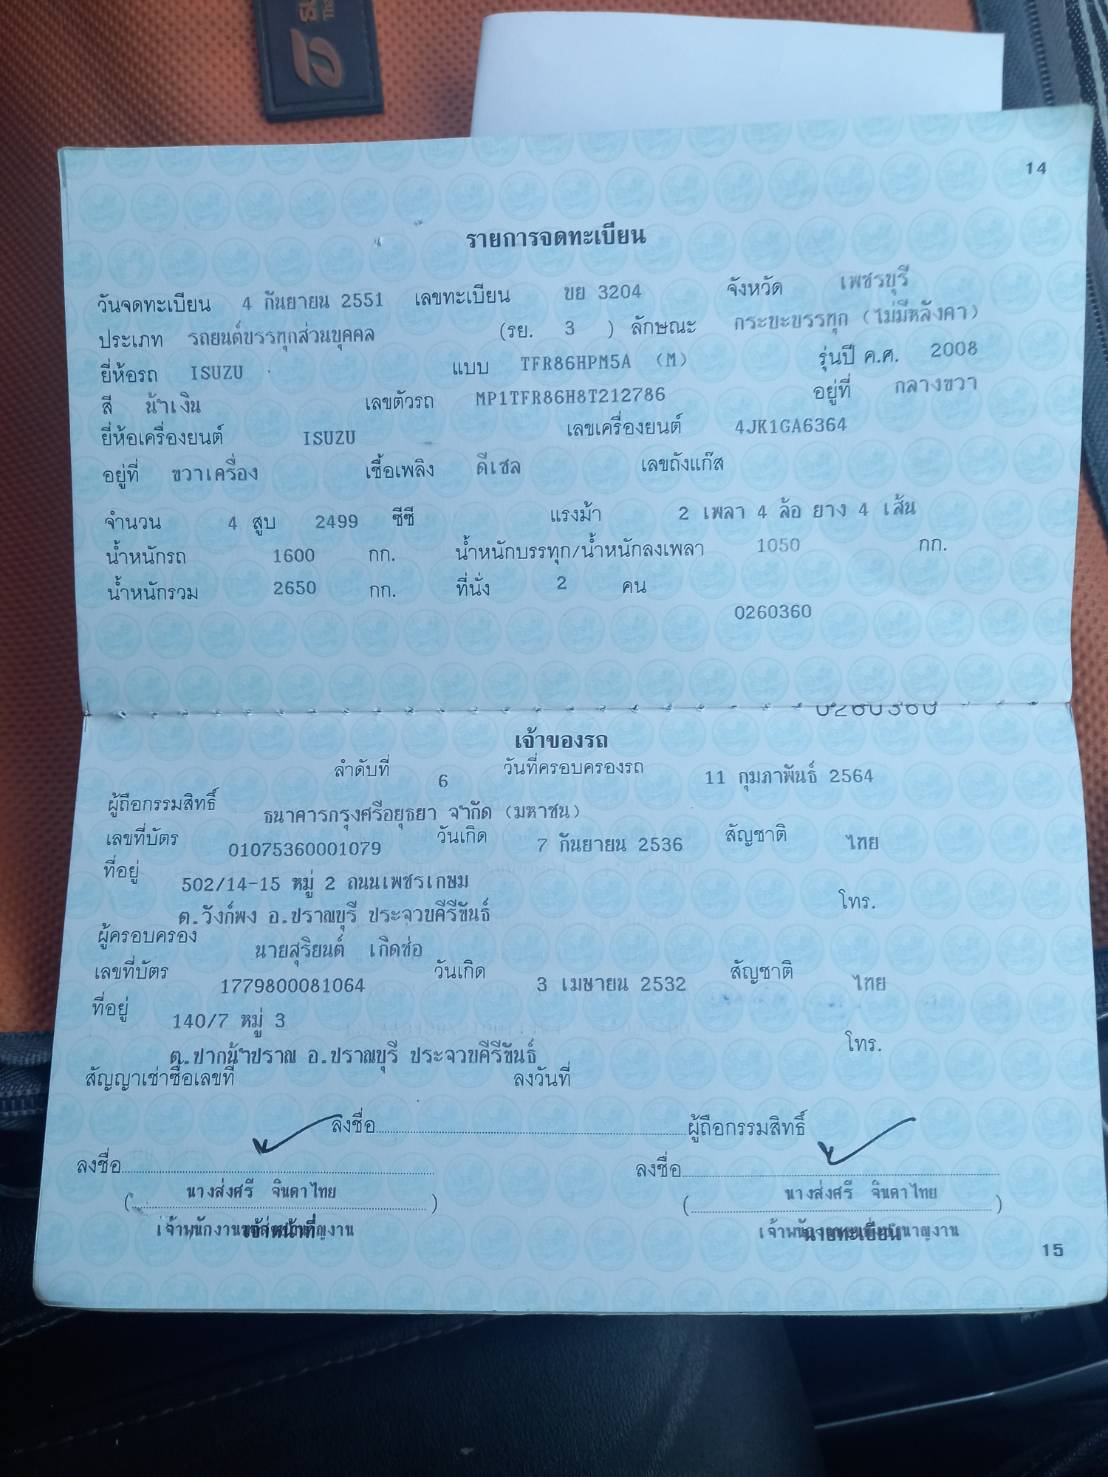 14
รายการจดทะเบียน
วันจดทะเบียน 4 กันยายน 2551 เลขทะเบียน ขย 3204 จังหวัด เพชรบุรี
ประเภท รถยนต์บรรทุกส่วนบุคคล (รย. 3 ) ลักษณะ กระบะบรรทุก (ไม่มีหลังคา)
ยี่ห้อรถ ISUZU แบบ TFR86HPM5A (M) รุ่นปี ค.ศ. 2008
สี น้ำเงิน เลขตัวรถ MP1TFR86H8T212786 อยู่ที่ กลางขวา
ยี่ห้อเครื่องยนต์ ISUZU เลขเครื่องยนต์ 4JK1GA6364
อยู่ที่ ขวาเครื่อง เชื้อเพลิง ดีเซล เลขถังแก๊ส
จำนวน 4 สูบ 2499 ซีซี แรงม้า 2 เพลา 4 ล้อ ยาง 4 เส้น
น้ำหนักรถ 1600 กก. น้ำหนักบรรทุก/น้ำหนักลงเพลา 1050 กก.
น้ำหนักรวม 2650 กก. ที่นั่ง 2 คน
0260360
0260360
เจ้าของรถ
ลำดับที่ 6 วันที่ครอบครองรถ 11 กุมภาพันธ์ 2564
ผู้ถือกรรมสิทธิ์ ธนาคารกรุงศรีอยุธยา จำกัด (มหาชน)
เลขที่บัตร 01075360001079 วันเกิด 7 กันยายน 2536 สัญชาติ ไทย
ที่อยู่ 502/14-15 หมู่ 2 ถนนเพชรเกษม
ต.วังก์พง อ.ปราณบุรี ประจวบคีรีขันธ์ โทร.
ผู้ครอบครอง นายสุริยนต์ เกิดช่อ
เลขที่บัตร 1779800081064 วันเกิด 3 เมษายน 2532 สัญชาติ ไทย
ที่อยู่ 140/7 หมู่ 3
ต.ปากน้ำปราณ อ.ปราณบุรี ประจวบคีรีขันธ์ โทร.
สัญญาเช่าซื้อเลขที่ ลงวันที่
ลงชื่อ ผู้ถือกรรมสิทธิ์
ลงชื่อ ลงชื่อ
(นางส่งศรี จินดาไทย) (นางส่งศรี จินดาไทย)
เจ้าหน้าที่ นายทะเบียน
15